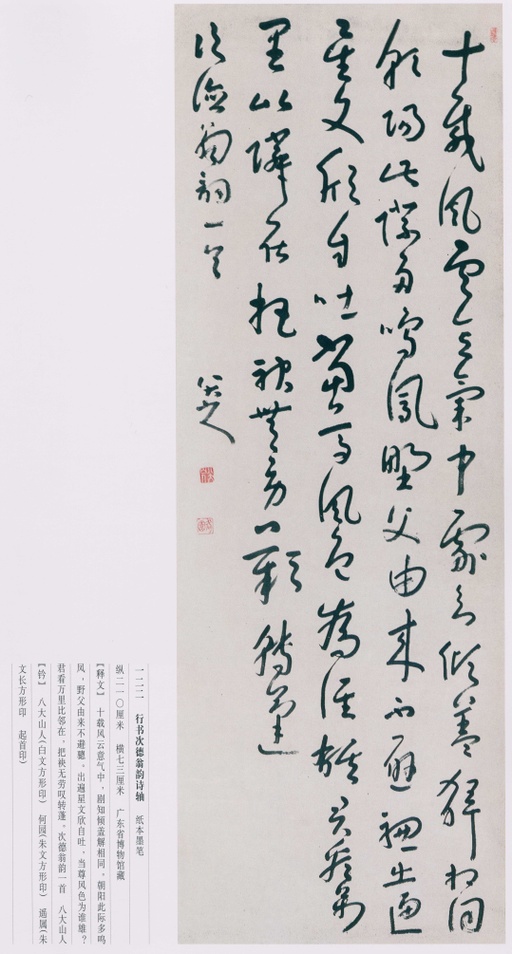 十載風雲意氣中劇知傾蓋解相同
朝陽此際多鳴鳳野父由來不避驄出遍
星文欣自吐當尊風色為誰雄君看萬
里比鄰在把袂無勞歎轉蓬
次德翁韵一首 八大山人
一二二 行书次德翁韵诗轴 纸本墨笔
纵二一〇厘米 横七三厘米 广东省博物馆藏
【释文】 十载风云意气中，剧知倾盖解相同。朝阳此际多鸣
凤，野父由来不避骢。出遍星文欣自吐，当尊风色为谁雄？
君看万里比邻在，把袂无劳叹转蓬。次德翁韵一首 八大山人
【钤】 八大山人(白文方形印) 何园(朱文方形印) 遥属(朱
文长方形印 起首印)